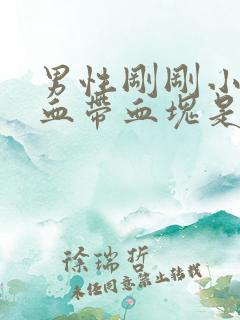 男性剛剛小
血帶血塊是
徐瑞哲
未经同意禁止转载